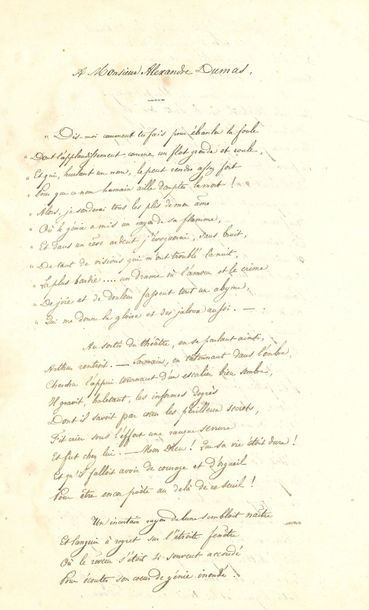 A Monsieur Alexandre Dumas.
" Dis-moi comment tu fais pour ébranler la foule
" Dont l'applaudissement comme un flot gronde et roule,
" Et qui, hurlant un nom, le peut rendre assez fort
" Pour que ce nom humain mille dompte la mort !
" Alors, je sonderai tous les plis de mon âme
" Où le génie a mis un rayon de sa flamme,
" Et dans un rêve ardent j'évoquerai, sans bruit,
" De tant de visions qui m'ont troublé la nuit,
" La plus hardie .... un drame où l'amour et le crime
" De joie et de douleur fassent tout un abyme,
" Qui me donne la gloire et des jaloux aussi. — "
Au sortir du théâtre, en se parlant ainsi,
rentrait. — en tâtonnant dans l'ombre,
Chercha l'appui tournant d'un escalier bien sombre,
Il gravit, haletant, les infâmes degrés
Dont il savait par cœur les périlleux secrets,
Fit crier sous l'effort une rauque serrure
Et fut chez lui. — Mon Dieu ! Que sa vie était dure !
Et qu'il fallait avoir de courage et d'orgueil
Pour être encor poète au delà de ce seuil !
Un incertain rayon de lune semblait naître
Et languir à regret sur l'étroite fenêtre
Où le rêveur s'était si souvent accoudé
Pour écouter son cœur de génie inondé.